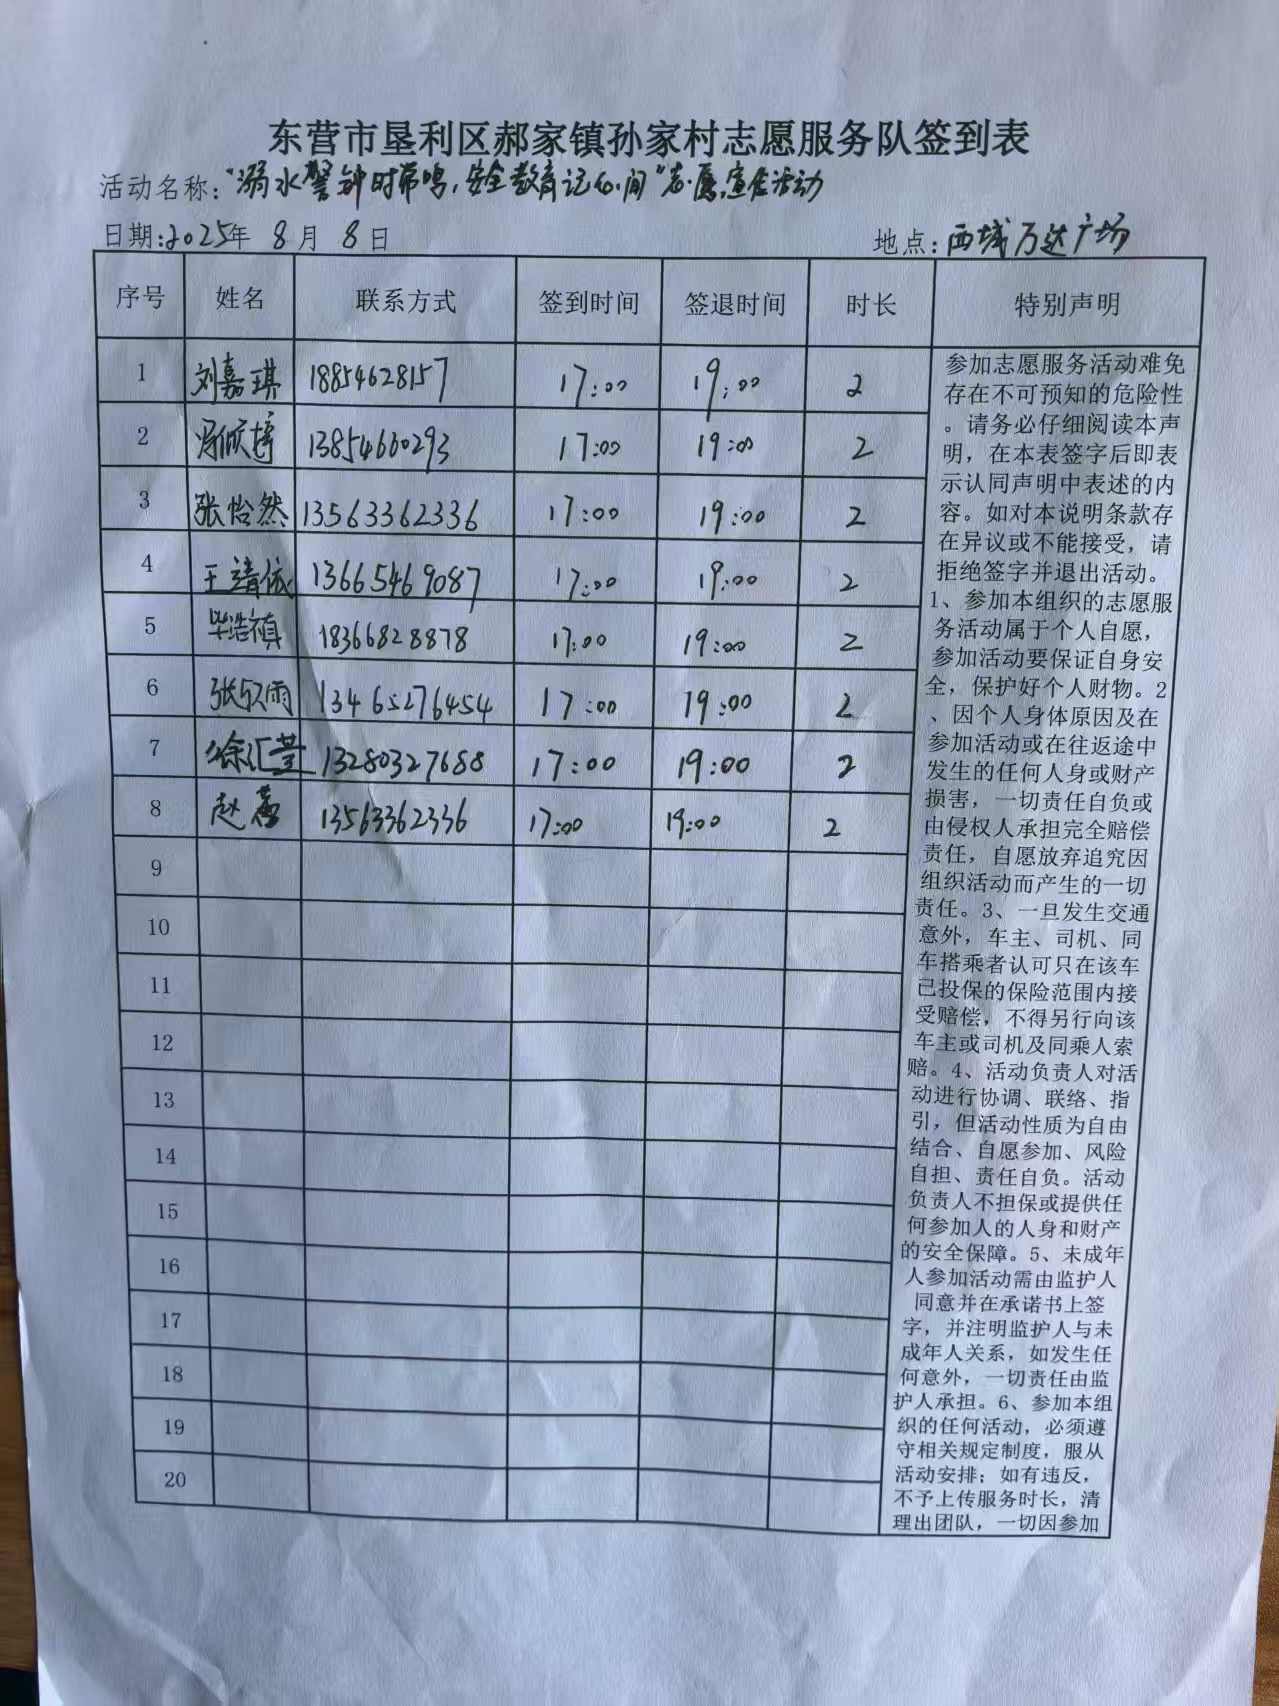 东营市垦利区郝家镇孙家村志愿服务队签到表
活动名称:“溺水警钟时常鸣,安全教育记心间”志愿宣传活动
日期:2025年 8 月 8 日 地点:西城万达广场
序号 姓名 联系方式 签到时间 签退时间 时长 特别声明
1 刘嘉琪 18854628157 17:00 19:00 2
2 13854660293 17:00 19:00 2
3 张怡然 13563362336 17:00 19:00 2
4 王靖依 13665469087 17:00 19:00 2
5 毕浩禛 18366828878 17:00 19:00 2
6 张欣雨 13465276454 17:00 19:00 2
7 徐汇萱 13280327688 17:00 19:00 2
8 赵 13563362336 17:00 19:00 2
9
10
11
12
13
14
15
16
17
18
19
20
参加志愿服务活动难免
存在不可预知的危险性
。请务必仔细阅读本声
明,在本表签字后即表
示认同声明中表述的内
容。如对本说明条款存
在异议或不能接受,请
拒绝签字并退出活动。
1、参加本组织的志愿服
务活动属于个人自愿,
参加活动要保证自身安
全,保护好个人财物。2
、因个人身体原因及在
参加活动或在往返途中
发生的任何人身或财产
损害,一切责任自负或
由侵权人承担完全赔偿
责任,自愿放弃追究因
组织活动而产生的一切
责任。3、一旦发生交通
意外,车主、司机、同
车搭乘者认可只在该车
已投保的保险范围内接
受赔偿,不得另行向该
车主或司机及同乘人索
赔。4、活动负责人对活
动进行协调、联络、指
引,但活动性质为自由
结合、自愿参加、风险
自担、责任自负。活动
负责人不担保或提供任
何参加人的人身和财产
的安全保障。5、未成年
人参加活动需由监护人
同意并在承诺书上签
字,并注明监护人与未
成年人关系,如发生任
何意外,一切责任由监
护人承担。6、参加本组
织的任何活动,必须遵
守相关规定制度,服从
活动安排;如有违反,
不予上传服务时长,清
理出团队,一切因参加